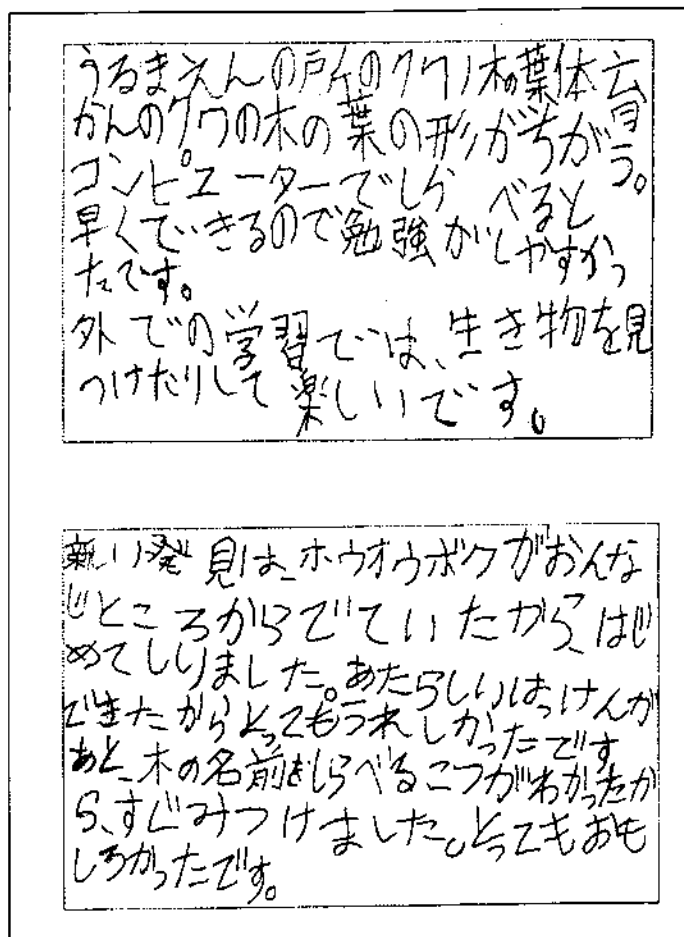 うるまえんの所のクワノ木の葉体育
かんのクワの木の葉の形がちがう。
コンピューターでしらべると
早くできるので勉強がしやすかっ
たです。
外での学習では、生き物を見
つけたりして楽しいです。
新しい発見は、ホウオウボクがおんな
じところからでていたから、はじ
めてしりました。あたらしいはっけんが
できたからとってもうれしかったです
あと、木の名前をしらべるこつがわかったか
ら、すぐみつけました。とってもおも
しろかったです。